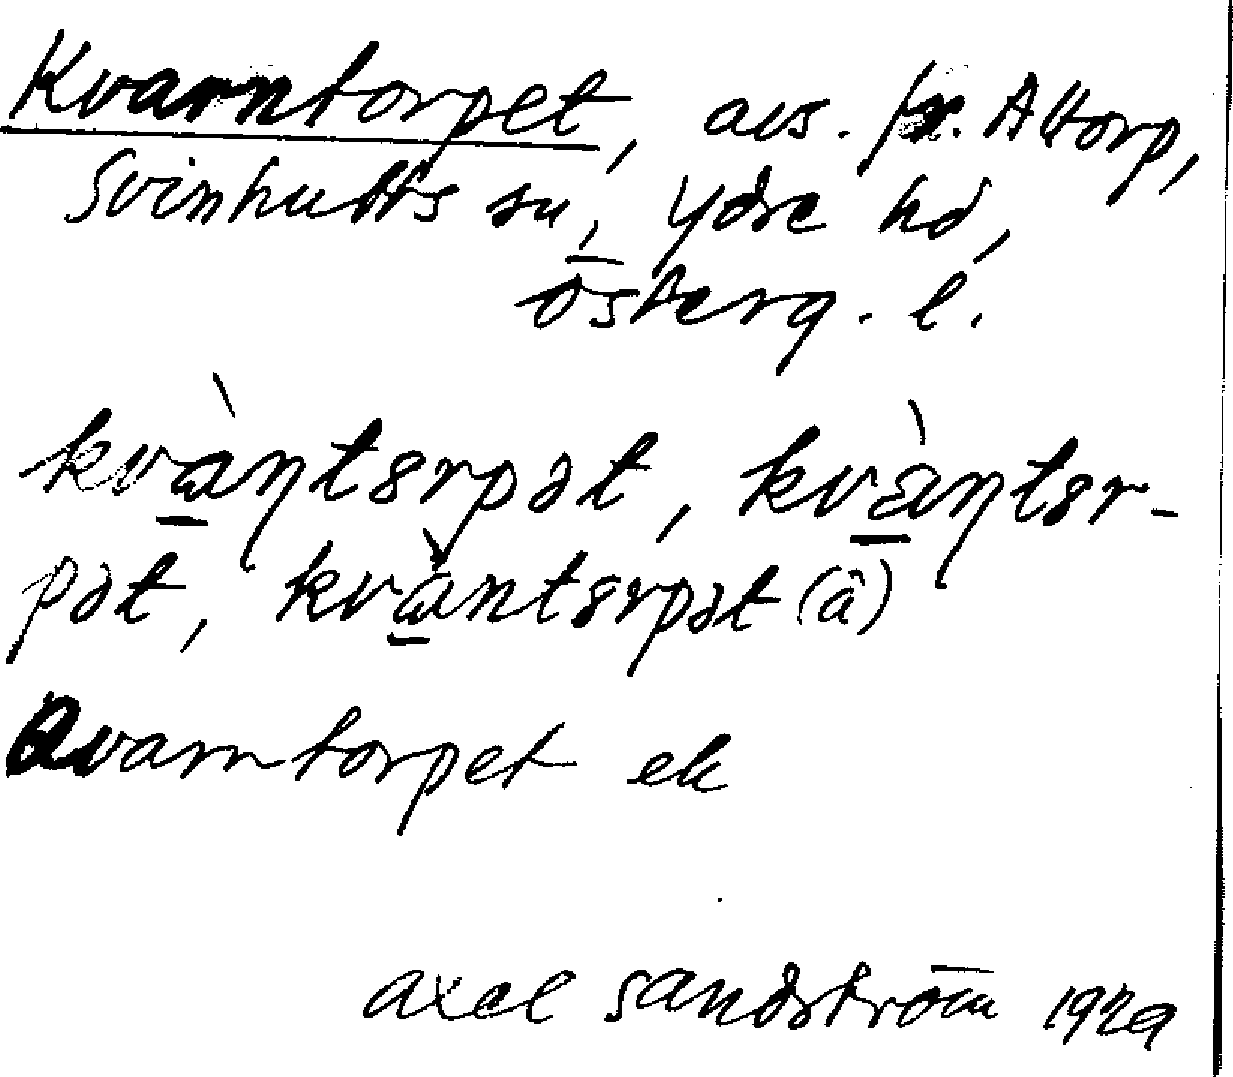 Kvarntorpet, avs. fr. Attorp,
Svinhults sn, Ydre hd,
Österg. l.
kvàn̥tɜrpət, kvàn̥tɜr-
pət, kvàntɜrpət (â)
Qvarntorpet ek
Axel Sandström 1929